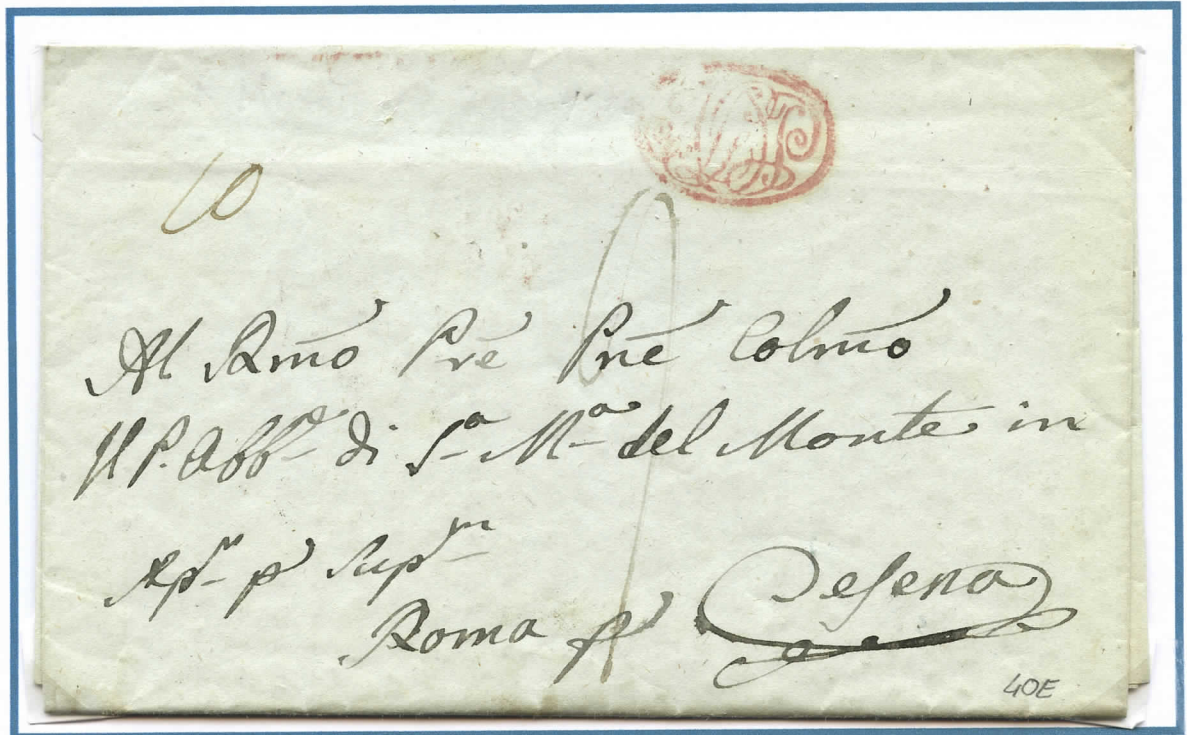 10
Al Rmo Pre Prie Colmo
Il P. Abbe di Sa Ma del Monte in
Roma p Cesena
40E